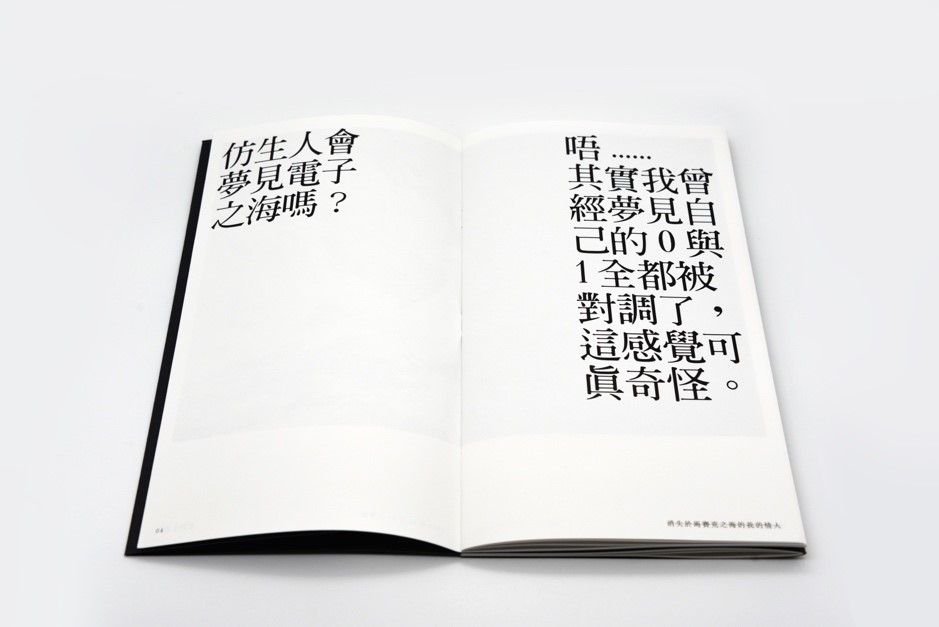 仿生人會
夢見電子
之海嗎？
唔……
其實我曾
經夢見自
己的0與
1全都被
對調了，
這感覺可
眞奇怪。
04
消失於海賽克之海的我的情人